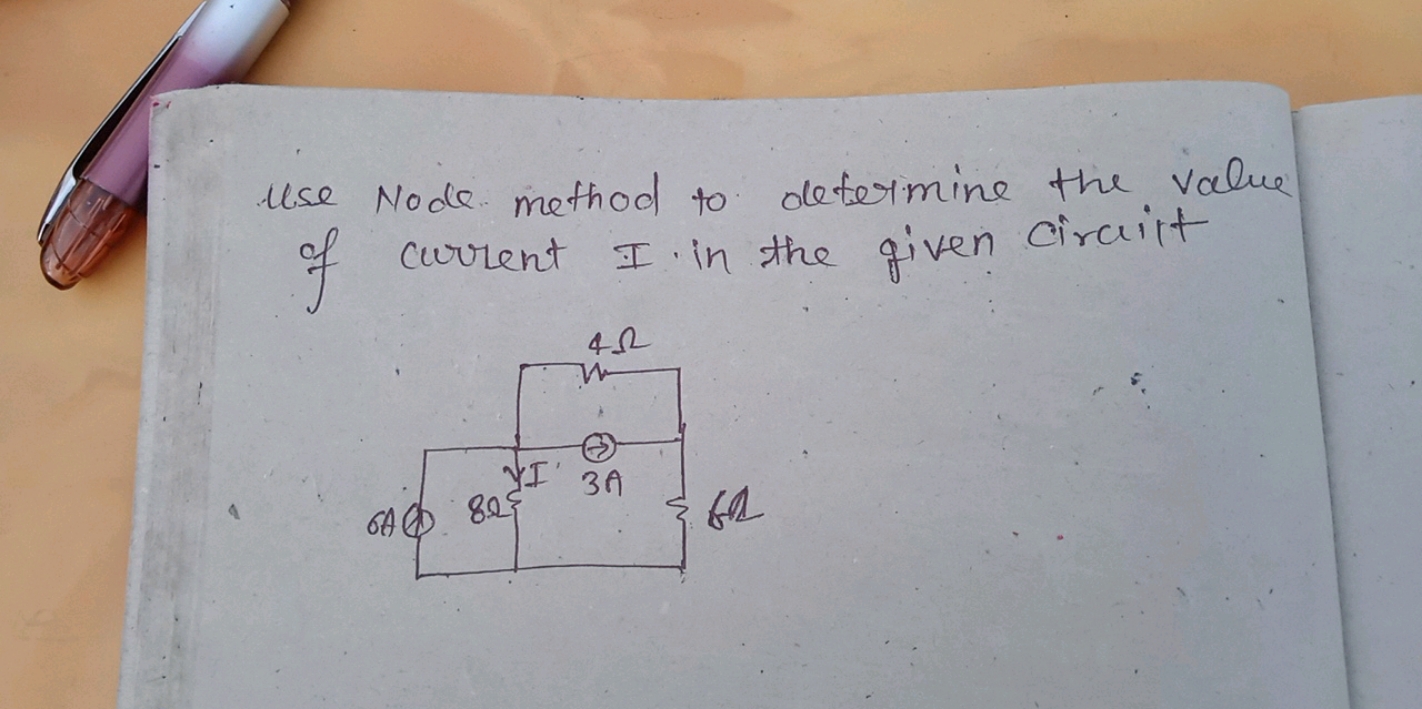 Use Node method to determine the value
of current I in the given Circuirt
4Ω
I
3A
6A
8Ω
6Ω